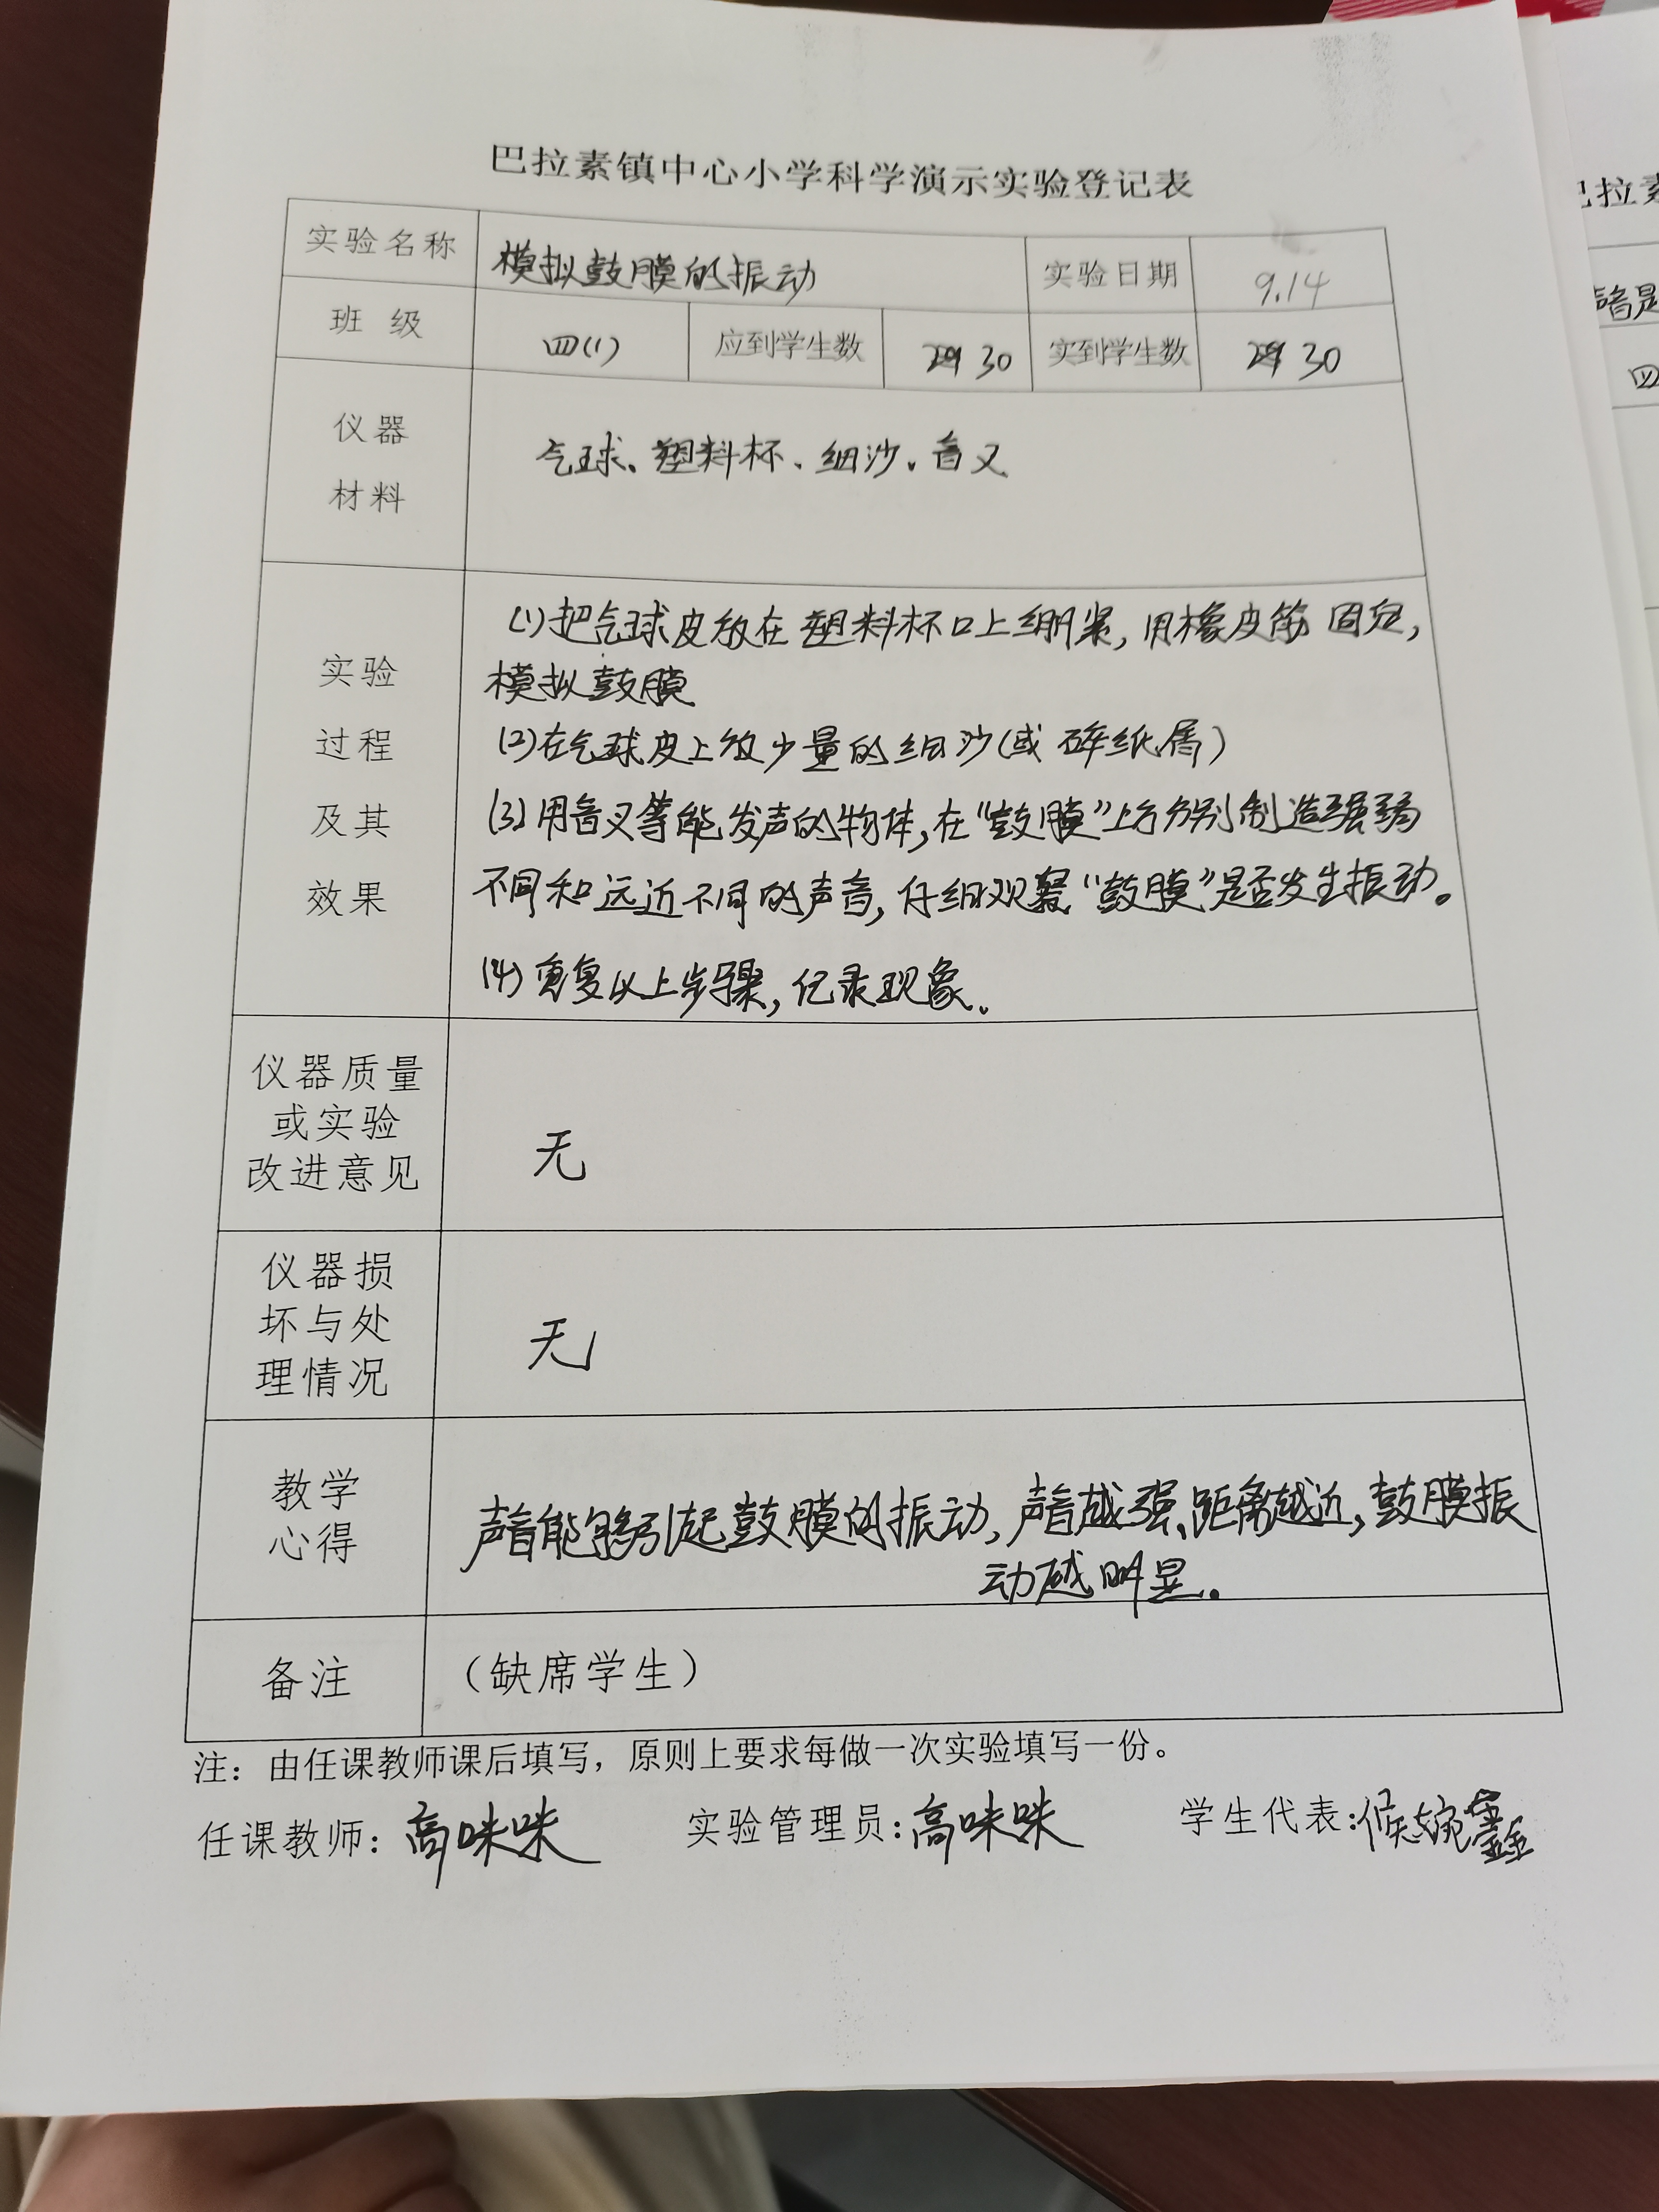 巴拉素镇中心小学科学演示实验登记表
实验名称 模拟鼓膜的振动 实验日期 9.14
班 级 四(1) 应到学生数 30 实到学生数 30
仪器
材料
气球、塑料杯、细沙、音叉
实验
过程
及其
效果
(1)把气球皮放在塑料杯口上绷紧,用橡皮筋固定,
模拟鼓膜
(2)在气球皮上放少量的细沙(或碎纸屑)
(3)用音叉等能发声的物体,在“鼓膜”上方分别制造强弱
不同和远近不同的声音,仔细观察“鼓膜”是否发生振动。
(4)重复以上步骤,记录现象。
仪器质量
或实验
改进意见
无
仪器损
坏与处
理情况
无
教学
心得
声音能够引起鼓膜的振动,声音越强、距离越近,鼓膜振
动越明显。
备注 （缺席学生）
注：由任课教师课后填写，原则上要求每做一次实验填写一份。
任课教师：高咪咪 实验管理员：高咪咪 学生代表：
巴拉素
声音是
四